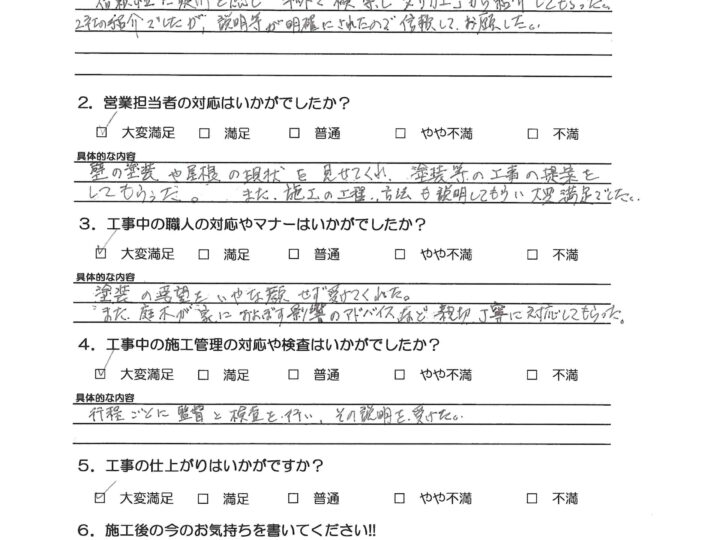 2社の紹介でしたが、説明等が明確にされたので信頼して、お願いした。
2．営業担当者の対応はいかがでしたか？
☑ 大変満足 □ 満足 □ 普通 □ やや不満 □ 不満
具体的な内容
壁の塗装や屋根の現状を見せてくれ、塗装等の工事の提案を
してもらった。また、施工の工程、方法も説明してもらい大変満足でした。
3．工事中の職人の対応やマナーはいかがでしたか？
☑ 大変満足 □ 満足 □ 普通 □ やや不満 □ 不満
具体的な内容
塗装の要望をいやな顔せず受けてくれた。
また、庭木が家におよぼす影響のアドバイスなど親切丁寧に対応してもらった。
4．工事中の施工管理の対応や検査はいかがでしたか？
☑ 大変満足 □ 満足 □ 普通 □ やや不満 □ 不満
具体的な内容
行程ごとに監督と検査を行い、その説明を受けた。
5．工事の仕上がりはいかがですか？
☑ 大変満足 □ 満足 □ 普通 □ やや不満 □ 不満
6．施工後の今のお気持ちを書いてください!!